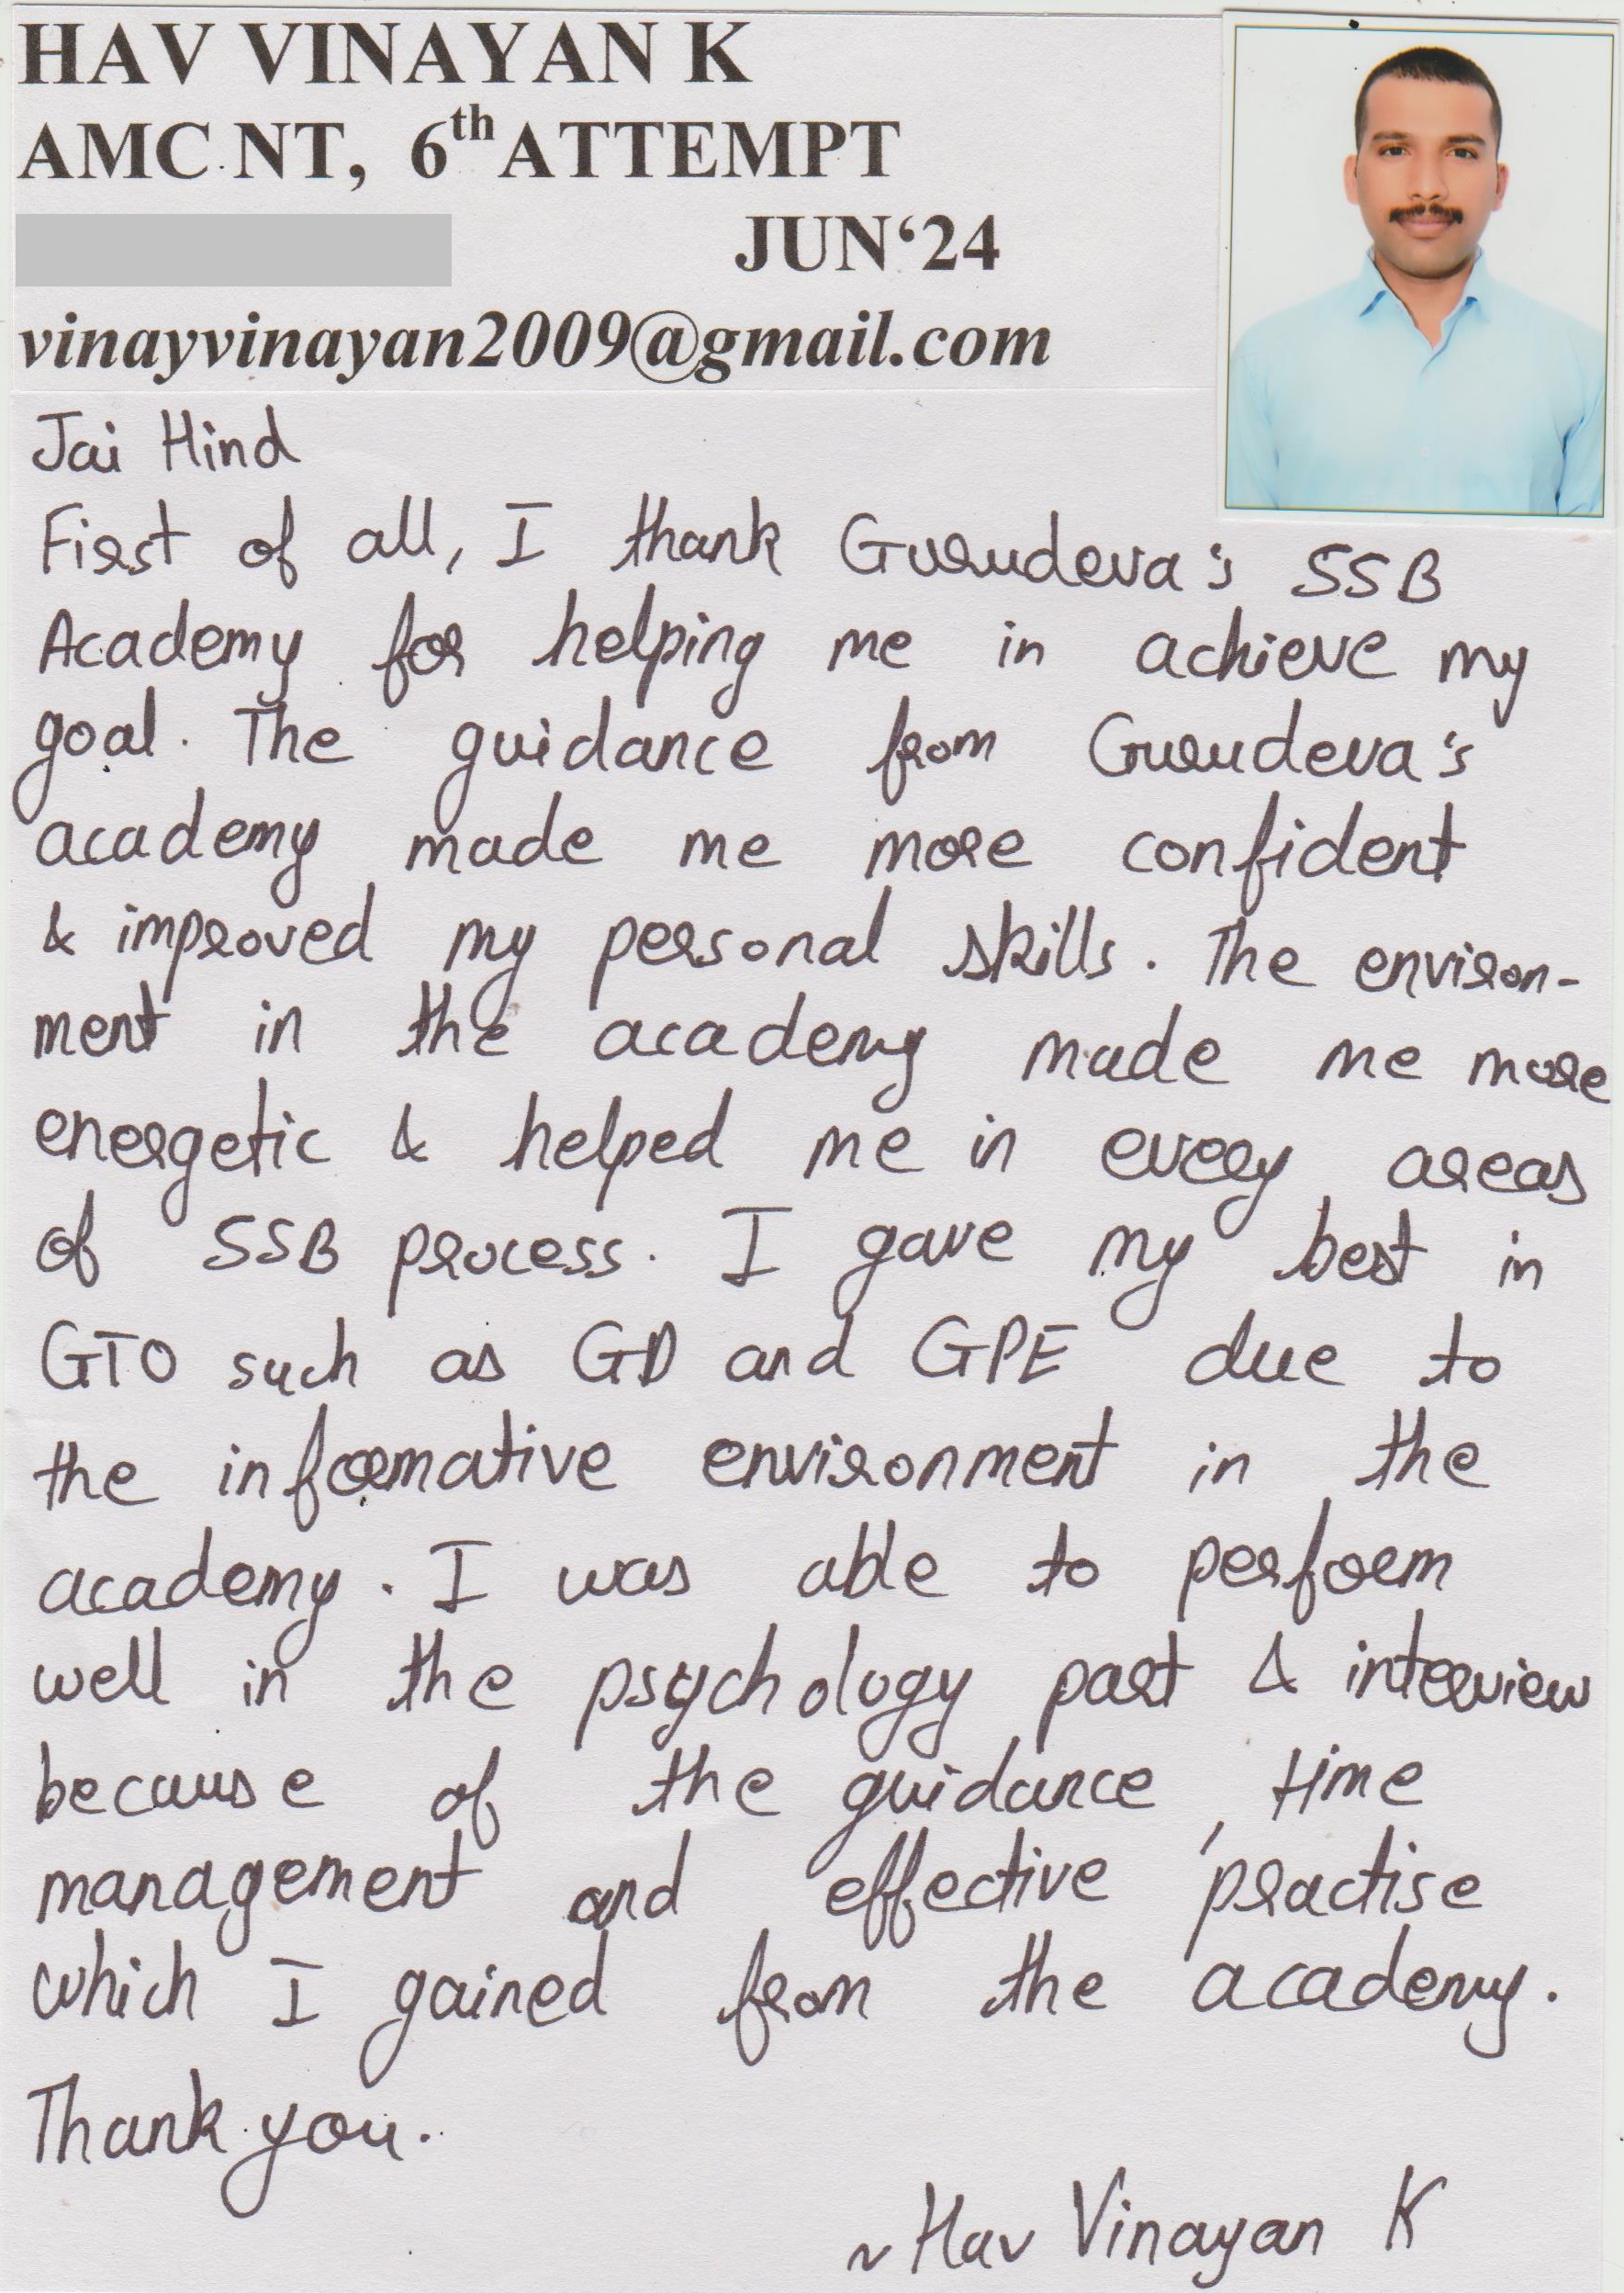 HAV VINAYAN K
AMC NT, 6th ATTEMPT
JUN‘24
vinayvinayan2009@gmail.com
Jai Hind
First of all, I thank Gurudeva's SSB
Academy for helping me in achieve my
goal. The guidance from Gurudeva's
academy made me more confident
& improved my personal skills. The environ-
ment in the academy made me more
energetic & helped me in every areas
of SSB process. I gave my best in
GTO such as GD and GPE due to
the informative environment in the
academy. I was able to perform
well in the psychology part & interview
because of the guidance, time
management and effective practise
which I gained from the academy.
Thank you.
~ Hav Vinayan K